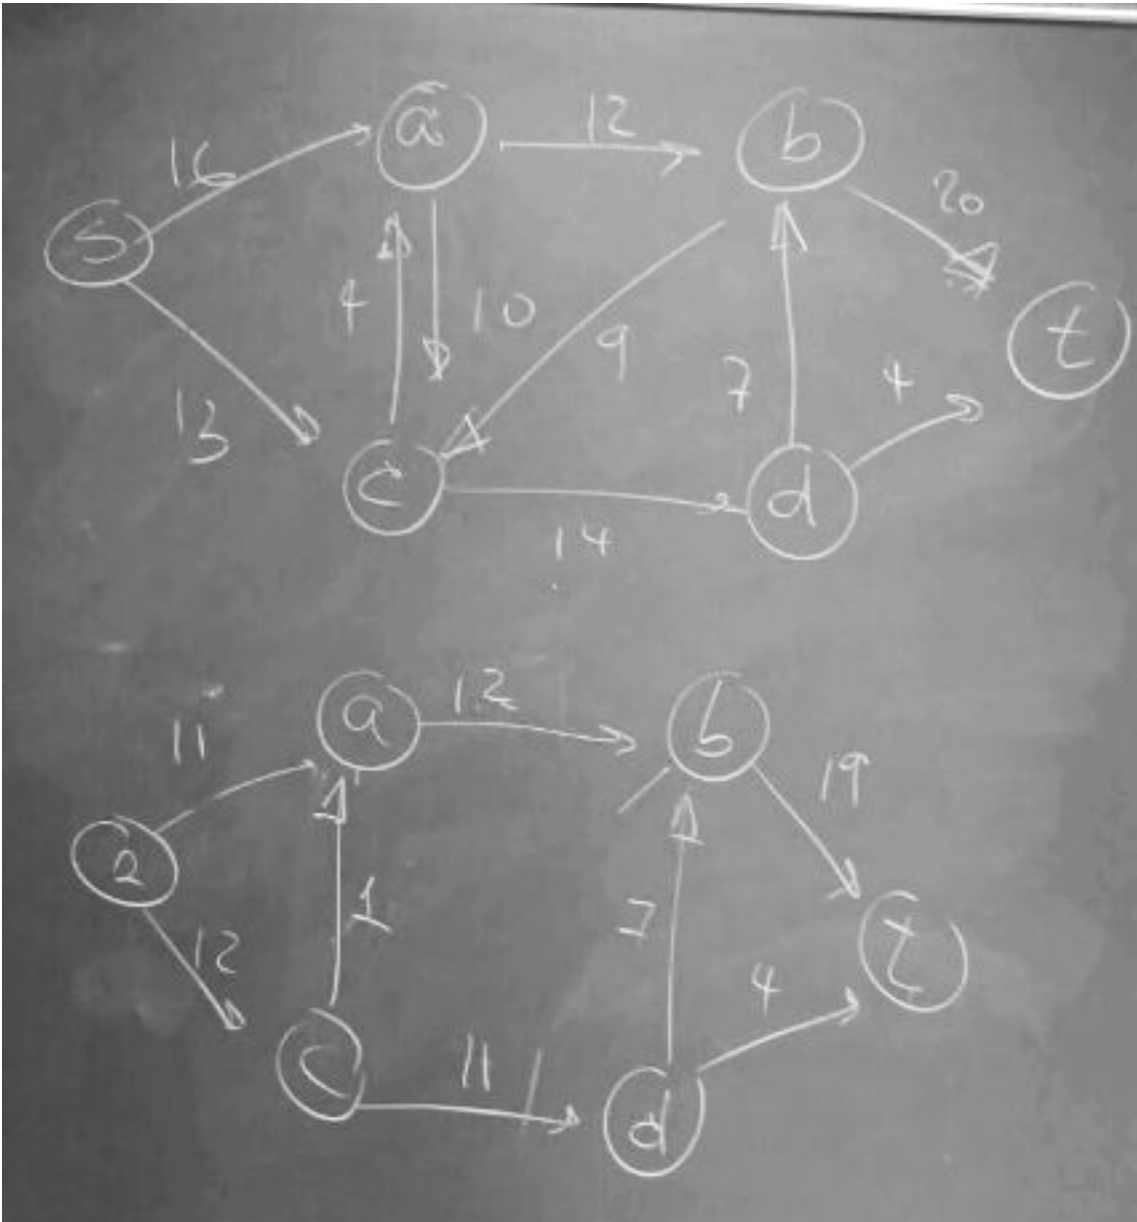 a 12 b
16 20
S
4 10 t
9 7 4
13
c d
14
a 12 b
11 19
2
1 7
12 t
4
c 11 d